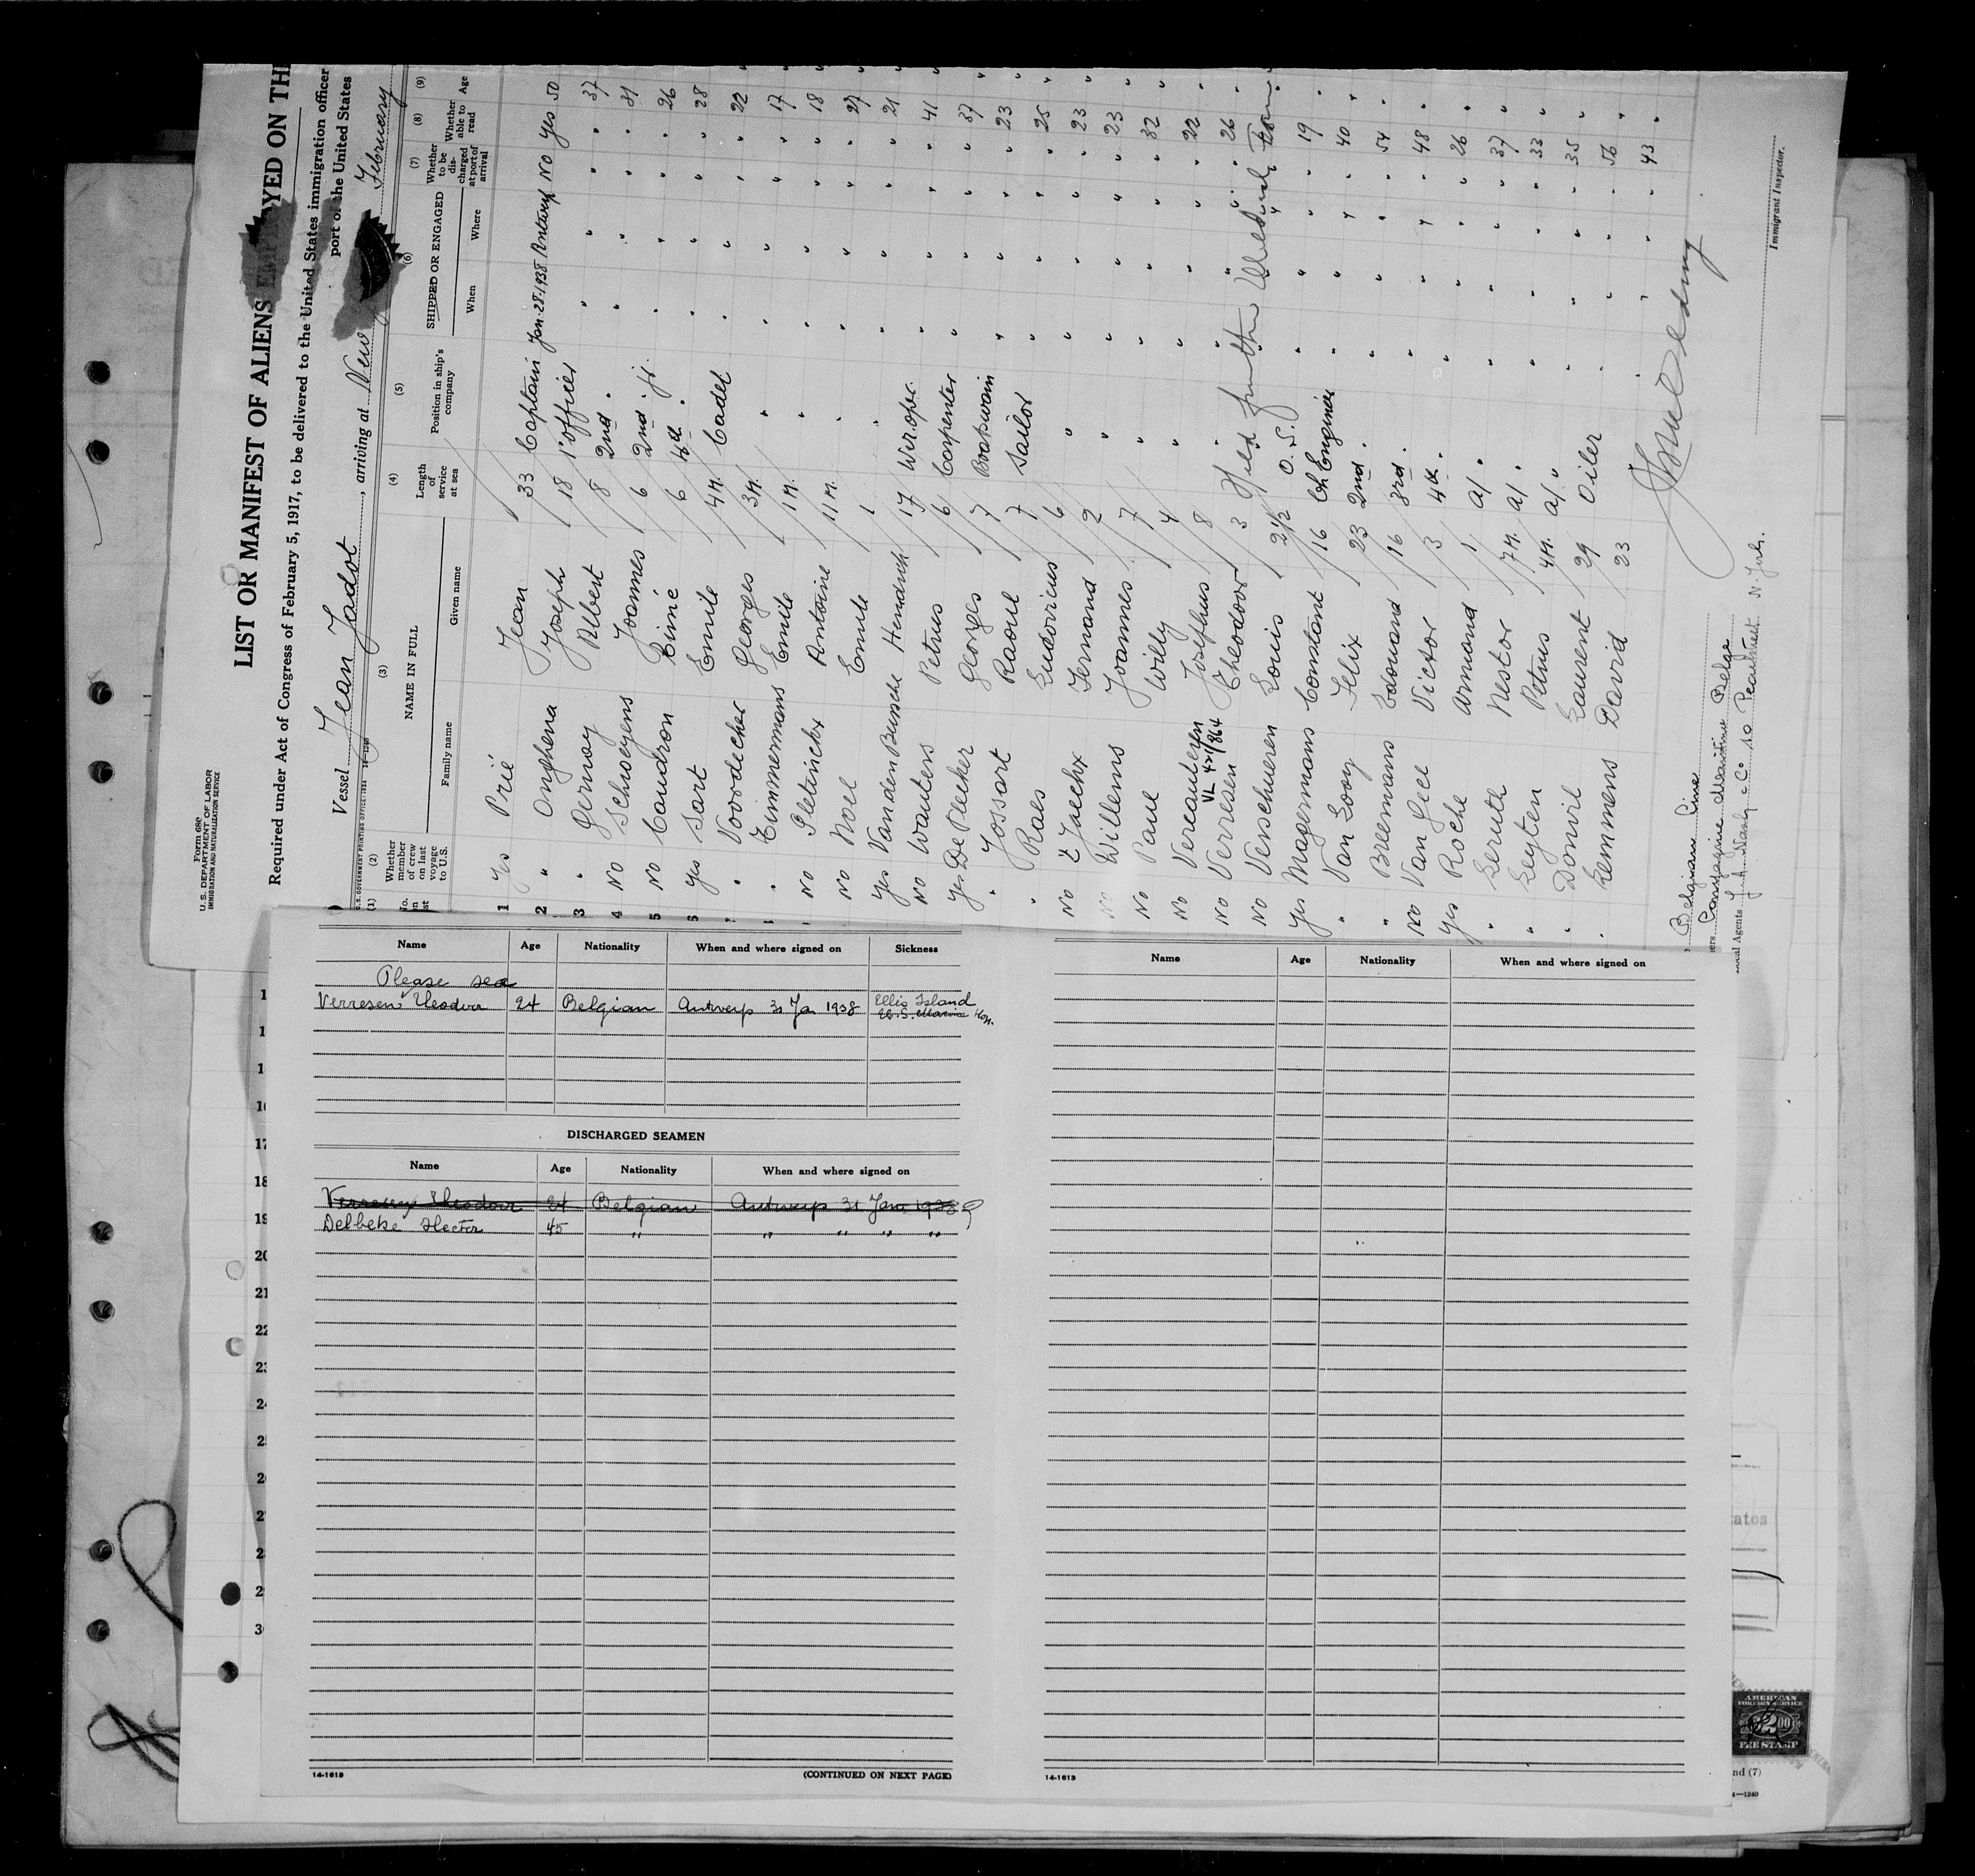 Form 680
U.S. DEPARTMENT OF LABOR
IMMIGRATION AND NATURALIZATION SERVICE
LIST OR MANIFEST OF ALIENS EMPLOYED ON TH
Required under Act of Congress of February 5, 1917, to be delivered to the United States immigration officer
port of the United States
Vessel Jean Jadot, arriving at New February
U.S. GOVERNMENT PRINTING OFFICE
(1) (2) (3) (4) (5) (6) (7) (8) (9)
Whether member of crew on last voyage to U.S.
NAME IN FULL
Family name Given name
Length of service at sea
Position in ship's company
SHIPPED OR ENGAGED
When Where
Whether to be discharged at port of arrival
Whether able to read
Age
1 Yes Prié Jean 33 Captain Jan-28-1938 Antwerp No Yes 50
2 " Onghena Joseph 18 1° officer " " " " 37
3 " Gernay Albert 8 2nd " " " " " 31
4 No Schroeyens Joannes 6 2nd " Jr. " " " " 26
5 No Caudron Aimé 6 4th " " " " " 28
6 Yes Sart Emile 4M. Cadet " " " " 22
" Voordecker Georges 3M. " " " " " 17
" Timmermans Emile 1M. " " " " " 18
No Pletinckx Antoine 11M. " " " " " 27
No Noel Emile 1 " " " " " 21
Yes Vanden Bussche Hendrik 17 Wir. oper. " " " " 41
No Wauters Petrus 6 Carpenter " " " " 37
Yes De Decker Georges 7 Boatswain " " " " 23
" Jossart Raoul 7 Sailor " " " " 25
" Raes Ludovicus 6 " " " " 23
No T'Jaeckx Fernand 2 " " " " " 23
No Willems Joannes 7 " " " " " 32
No Paul Willy 4 " " " " " 22
No Vereauteren Josephus 8 " " " " " 26
VL 471/864
No Verresen Theodoor 3
No Verschueren Louis 2½ O.S. " " " " 19
Yes Magermans Constant 16 Ch Engineer " " " " 40
" Van Looy Felix 23 2nd " " " " " 54
" Breemans Edouard 16 3rd " " " " " 48
No Van Geel Victor 3 4th " " " " " 26
Yes Roche Armand 1 a/ " " " " " 37
" Geruth Nestor 7M. a/ " " " " " 33
" Leyten Petrus 4M. a/ " " " " " 35
" Donvil Laurent 29 Oiler " " " " 56
" Lemmens David 23 " " " " 43
Belgian Line
Compagnie Maritime Belge
Immigrant Inspector.
Name Age Nationality When and where signed on Sickness
Please see
Verresen Theodoor 24 Belgian Antwerp 31 Ja 1938 Ellis Island
U.S. Marine Hos.
DISCHARGED SEAMEN
Name Age Nationality When and where signed on
Verresen Theodoor 24 Belgian Antwerp 31 Jan 1938
Delbeke Hector 45 " " " " "
14-1613 (CONTINUED ON NEXT PAGE)
Name Age Nationality When and where signed on
14-1613
17
18
19
20
21
22
AMERICAN
FOREIGN SERVICE
$2.00
FEE STAMP
nd (7)